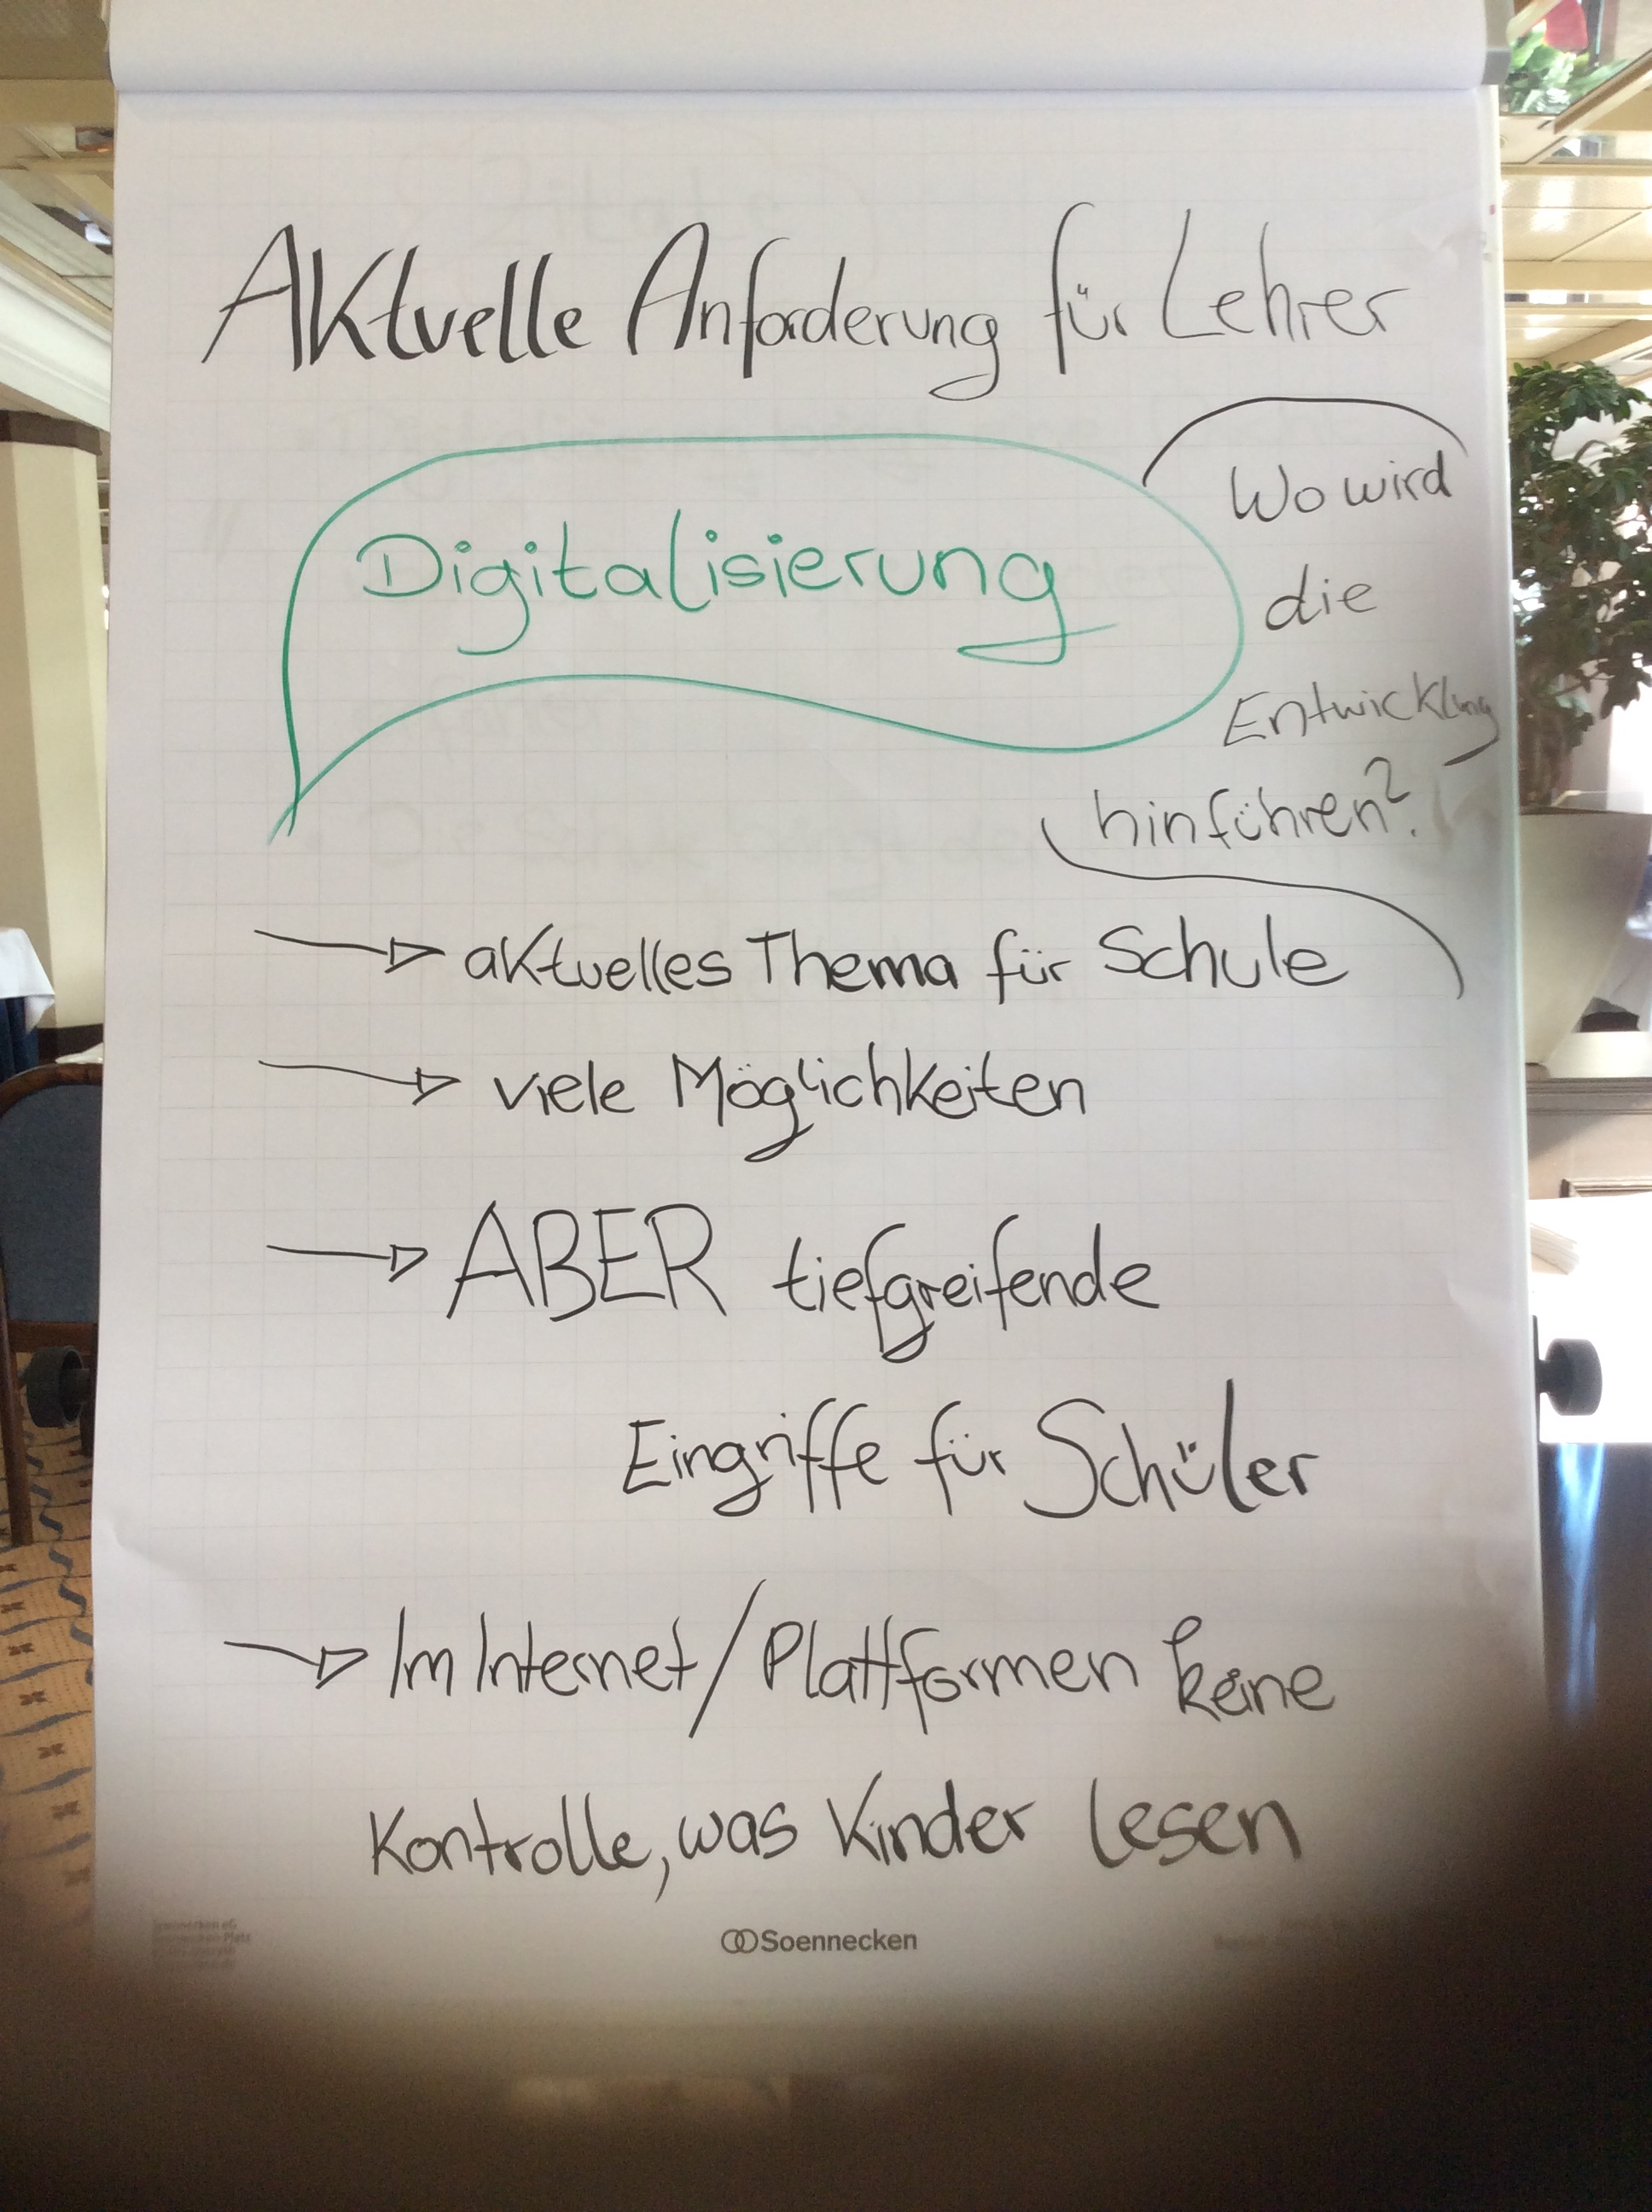 Aktuelle Anforderung für Lehrer
Digitalisierung
Wo wird
die
Entwicklung
hinführen?
aktuelles Thema für Schule
viele Möglichkeiten
ABER tiefgreifende
Eingriffe für Schüler
Im Internet/Plattformen keine
Kontrolle, was Kinder lesen
Soennecken